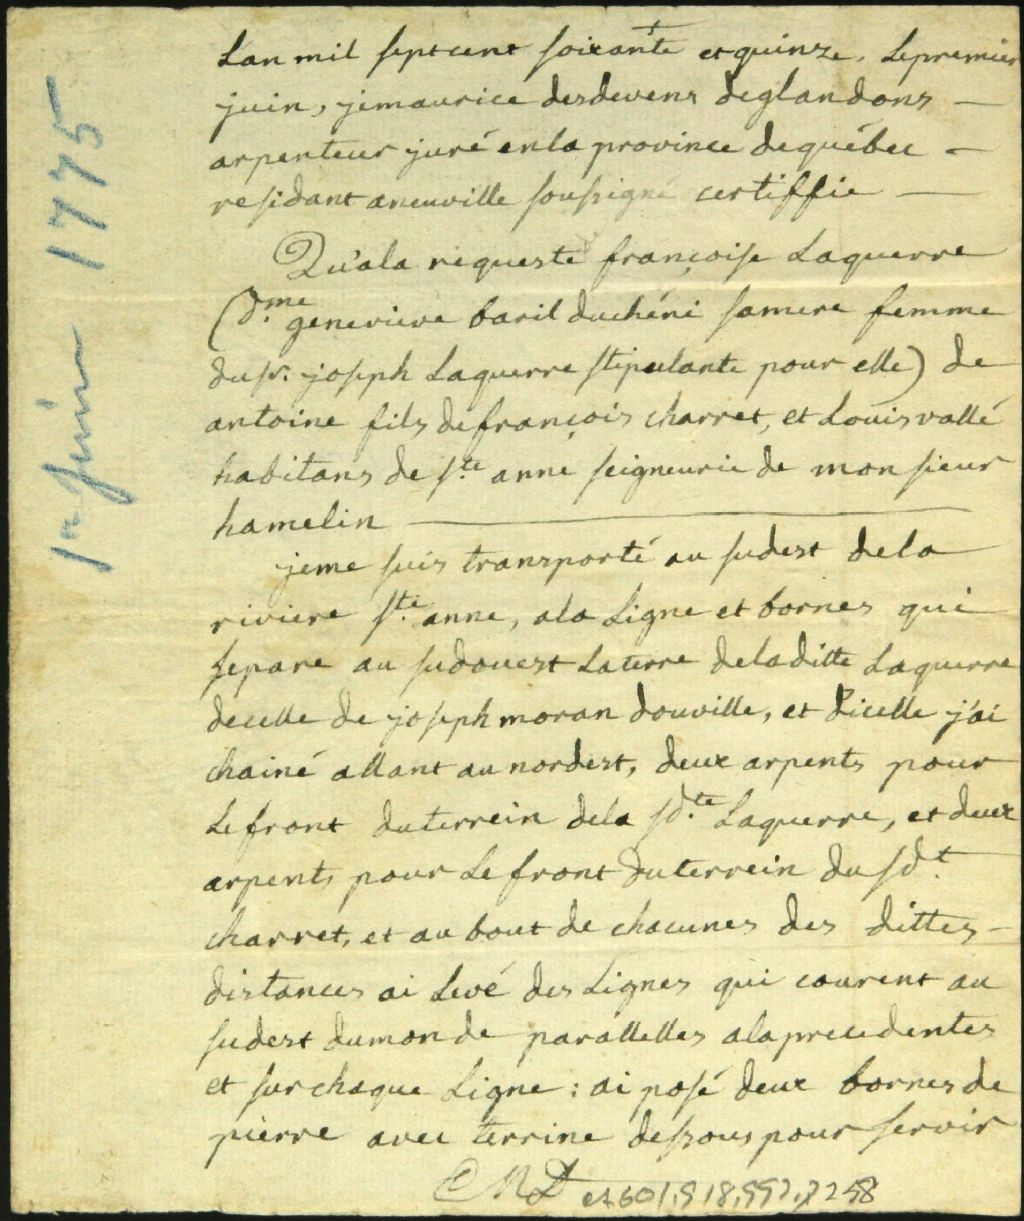 1er juin 1775
Lan mil sept cent soixante et quinze, Le premier
juin, je maurice desdevens deglandons —
arpenteur juré en la province de québec —
residant a neuville soussigné certiffie —
Qu'a la requeste françoise Laquerre
(d.me genevieve baril duchéni sa mere femme
du sr. joseph Laquerre stipulante pour elle) de
antoine fils de françois charret, et Louis vallé
habitans de ste. anne seigneurie de monsieur
hamelin —
je me suis transporté au sudest de la
riviere ste. anne, a la Ligne et bornes qui
separe au sudouest La terre de la ditte Laquerre
de celle de joseph moran douville, et d'icelle j'ai
chainé allant au nordest, deux arpents pour
Le front du terrein de la sd.te Laquerre, et deux
arpents pour Le front du terrein du sd.t
charret, et au bout de chacunes des dittes —
distances ai Levé des Lignes qui courent au
sudest du monde parallelles a la precedentes
et sur chaque Ligne : ai posé deux bornes de
pierre avec terrine dessous pour servir